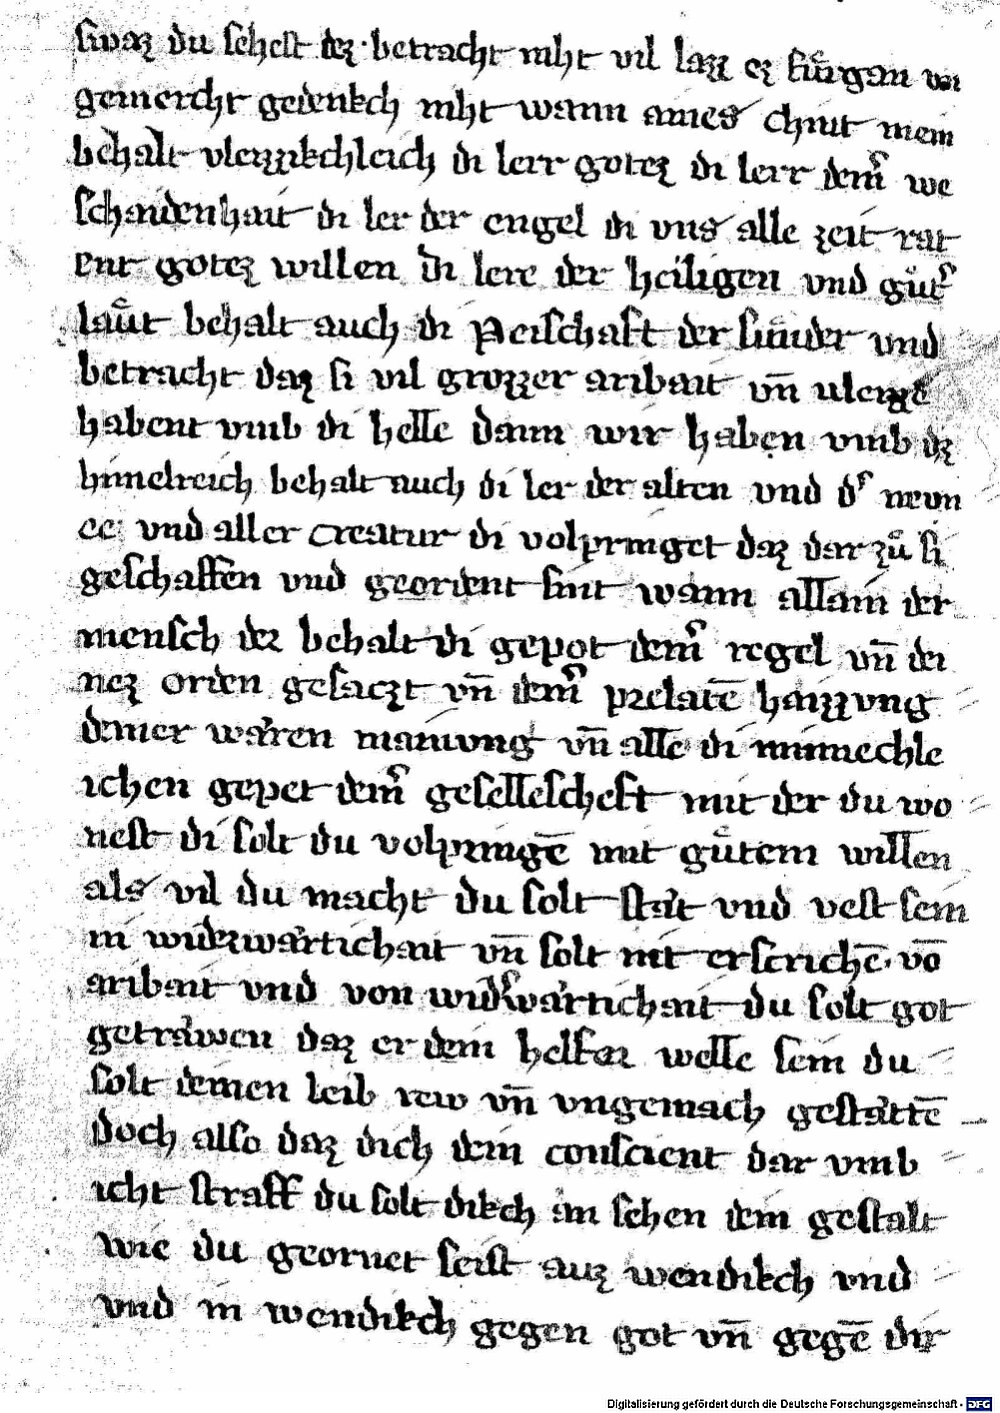 swaz du sehest dez betracht niht vil lazz ez fuͤrgan vn
gemercht gedenkch niht wann aines chint mein
behalt vleizzikchleich di lerr gotez di lerr deinˢ we
schaidenhait di ler der engel di vns alle zeit rat
ent gotez willen di lere der heiligen vnd guͤtˢ
laͤut behalt auch di Peischaft der sunder vnd
betracht daz si vil grozzer aribait vn̄ vleizzē
habent vmb di helle dann wir haben vmb dz
himelreich behalt auch di ler der alten vnd dˢ newn
ee vnd aller creatur di volpringet daz dar zuͦ si
geschaffen vnd geordent sint wann allain der
mensch dez behalt di gepot deinˢ regel vn̄ dei
nez orden gesaczt vn̄ deinˢ prelatē haizzung
deiner waͤren manvng vn̄ alle di minnechle
ichen gepet deinˢ geselleschaft mit der du wo
nest di solt du volpringē mit guͤtem willen
als vil du macht du solt staͤt vnd vest sein
in widerwaͤrtichait vn̄ solt nit erscrichē vō
aribait vnd von widˢwaͤrtichait du solt got
getraͤwen daz er dein helfer welle sein du
solt deinen leib rew vn̄ vngemach gestattē
doch also daz dich dein conscient dar vmb
icht straff du solt dikch an sehen dein gestalt
wie du geornet seist auz wendikch vnd
vnd in wendikch gegen got vn̄ gegē dir
Digitalisierung gefördert durch die Deutsche Forschungsgemeinschaft - DFG